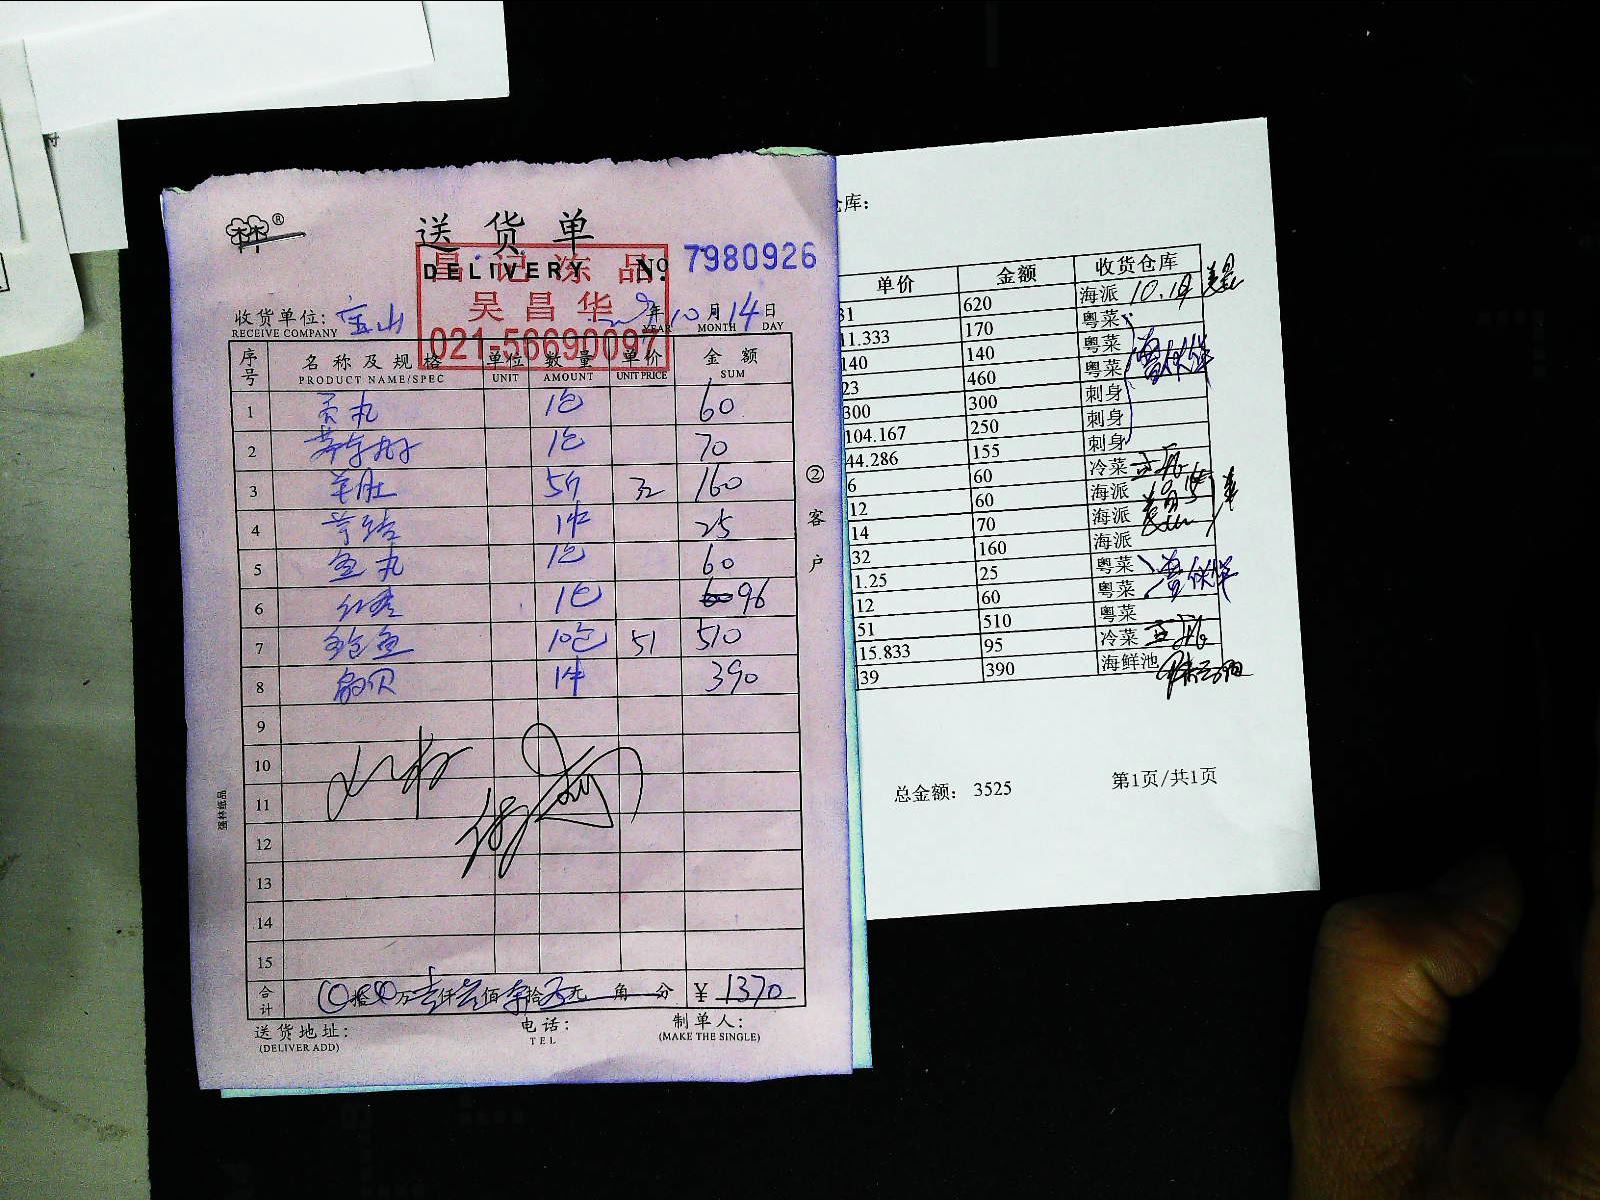 送货单
DELIVERY № 7980926
昌记冻品
吴昌华
021-56690097
收货单位: 宝山 年 10 月 14 日
RECEIVE COMPANY YEAR MONTH DAY
序号 名称及规格 单位 数量 单价 金额
PRODUCT NAME/SPEC UNIT AMOUNT UNIT PRICE SUM
1 丸 1包 60
2 1包 70
3 羊肚 5斤 32 160
4 1件 25
5 鱼丸 1包 60
6 1包 96
7 鲍鱼 10包 51 510
8 扇贝 1件 390
9
10
11
12
13
14
15
合计 拾 万 壹仟 佰 拾 元 角 分 ¥ 1370
送货地址: 电话: 制单人:
(DELIVER ADD) TEL (MAKE THE SINGLE)
②客户
强林纸品
仓库:
单价 金额 收货仓库
31 620 海派 10.14
11.333 170 粤菜
140 140 粤菜
23 460 粤菜
300 300 刺身
104.167 250 刺身
44.286 155 刺身
6 60 冷菜
12 60 海派
14 70 海派
32 160 海派
1.25 25 粤菜
12 60 粤菜
51 510 粤菜
15.833 95 冷菜
39 390 海鲜池
总金额: 3525 第1页/共1页